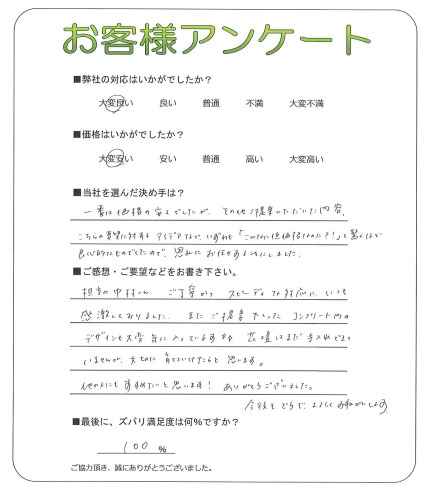 お客様アンケート
■弊社の対応はいかがでしたか?
大変良い 良い 普通 不満 大変不満
■価格はいかがでしたか?
大変安い 安い 普通 高い 大変高い
■当社を選んだ決め手は?
一番は価格の安さでしたが、その他ご提案いただいた内容、
こちらの要望に対するアイデアなど、いずれも「こんなに低価格なのに?!」と驚くほど
良心的なものでしたので、思わずお任せすることにしました。
■ご感想・ご要望などをお書き下さい。
担当の中村さん、ご丁寧かつスピーディな対応に、いつも
感激しておりました。またご提案下さったコンクリートの
デザインも大変気に入っています 花壇はまだ手入れできて
いませんが、大切に育てていけたらと思います。
他の人にもすすめたいと思います! ありがとうございました。
今後ともどうぞ、よろしくお願いします
■最後に、ズバリ満足度は何%ですか?
100 %
ご協力頂き、誠にありがとうございました。